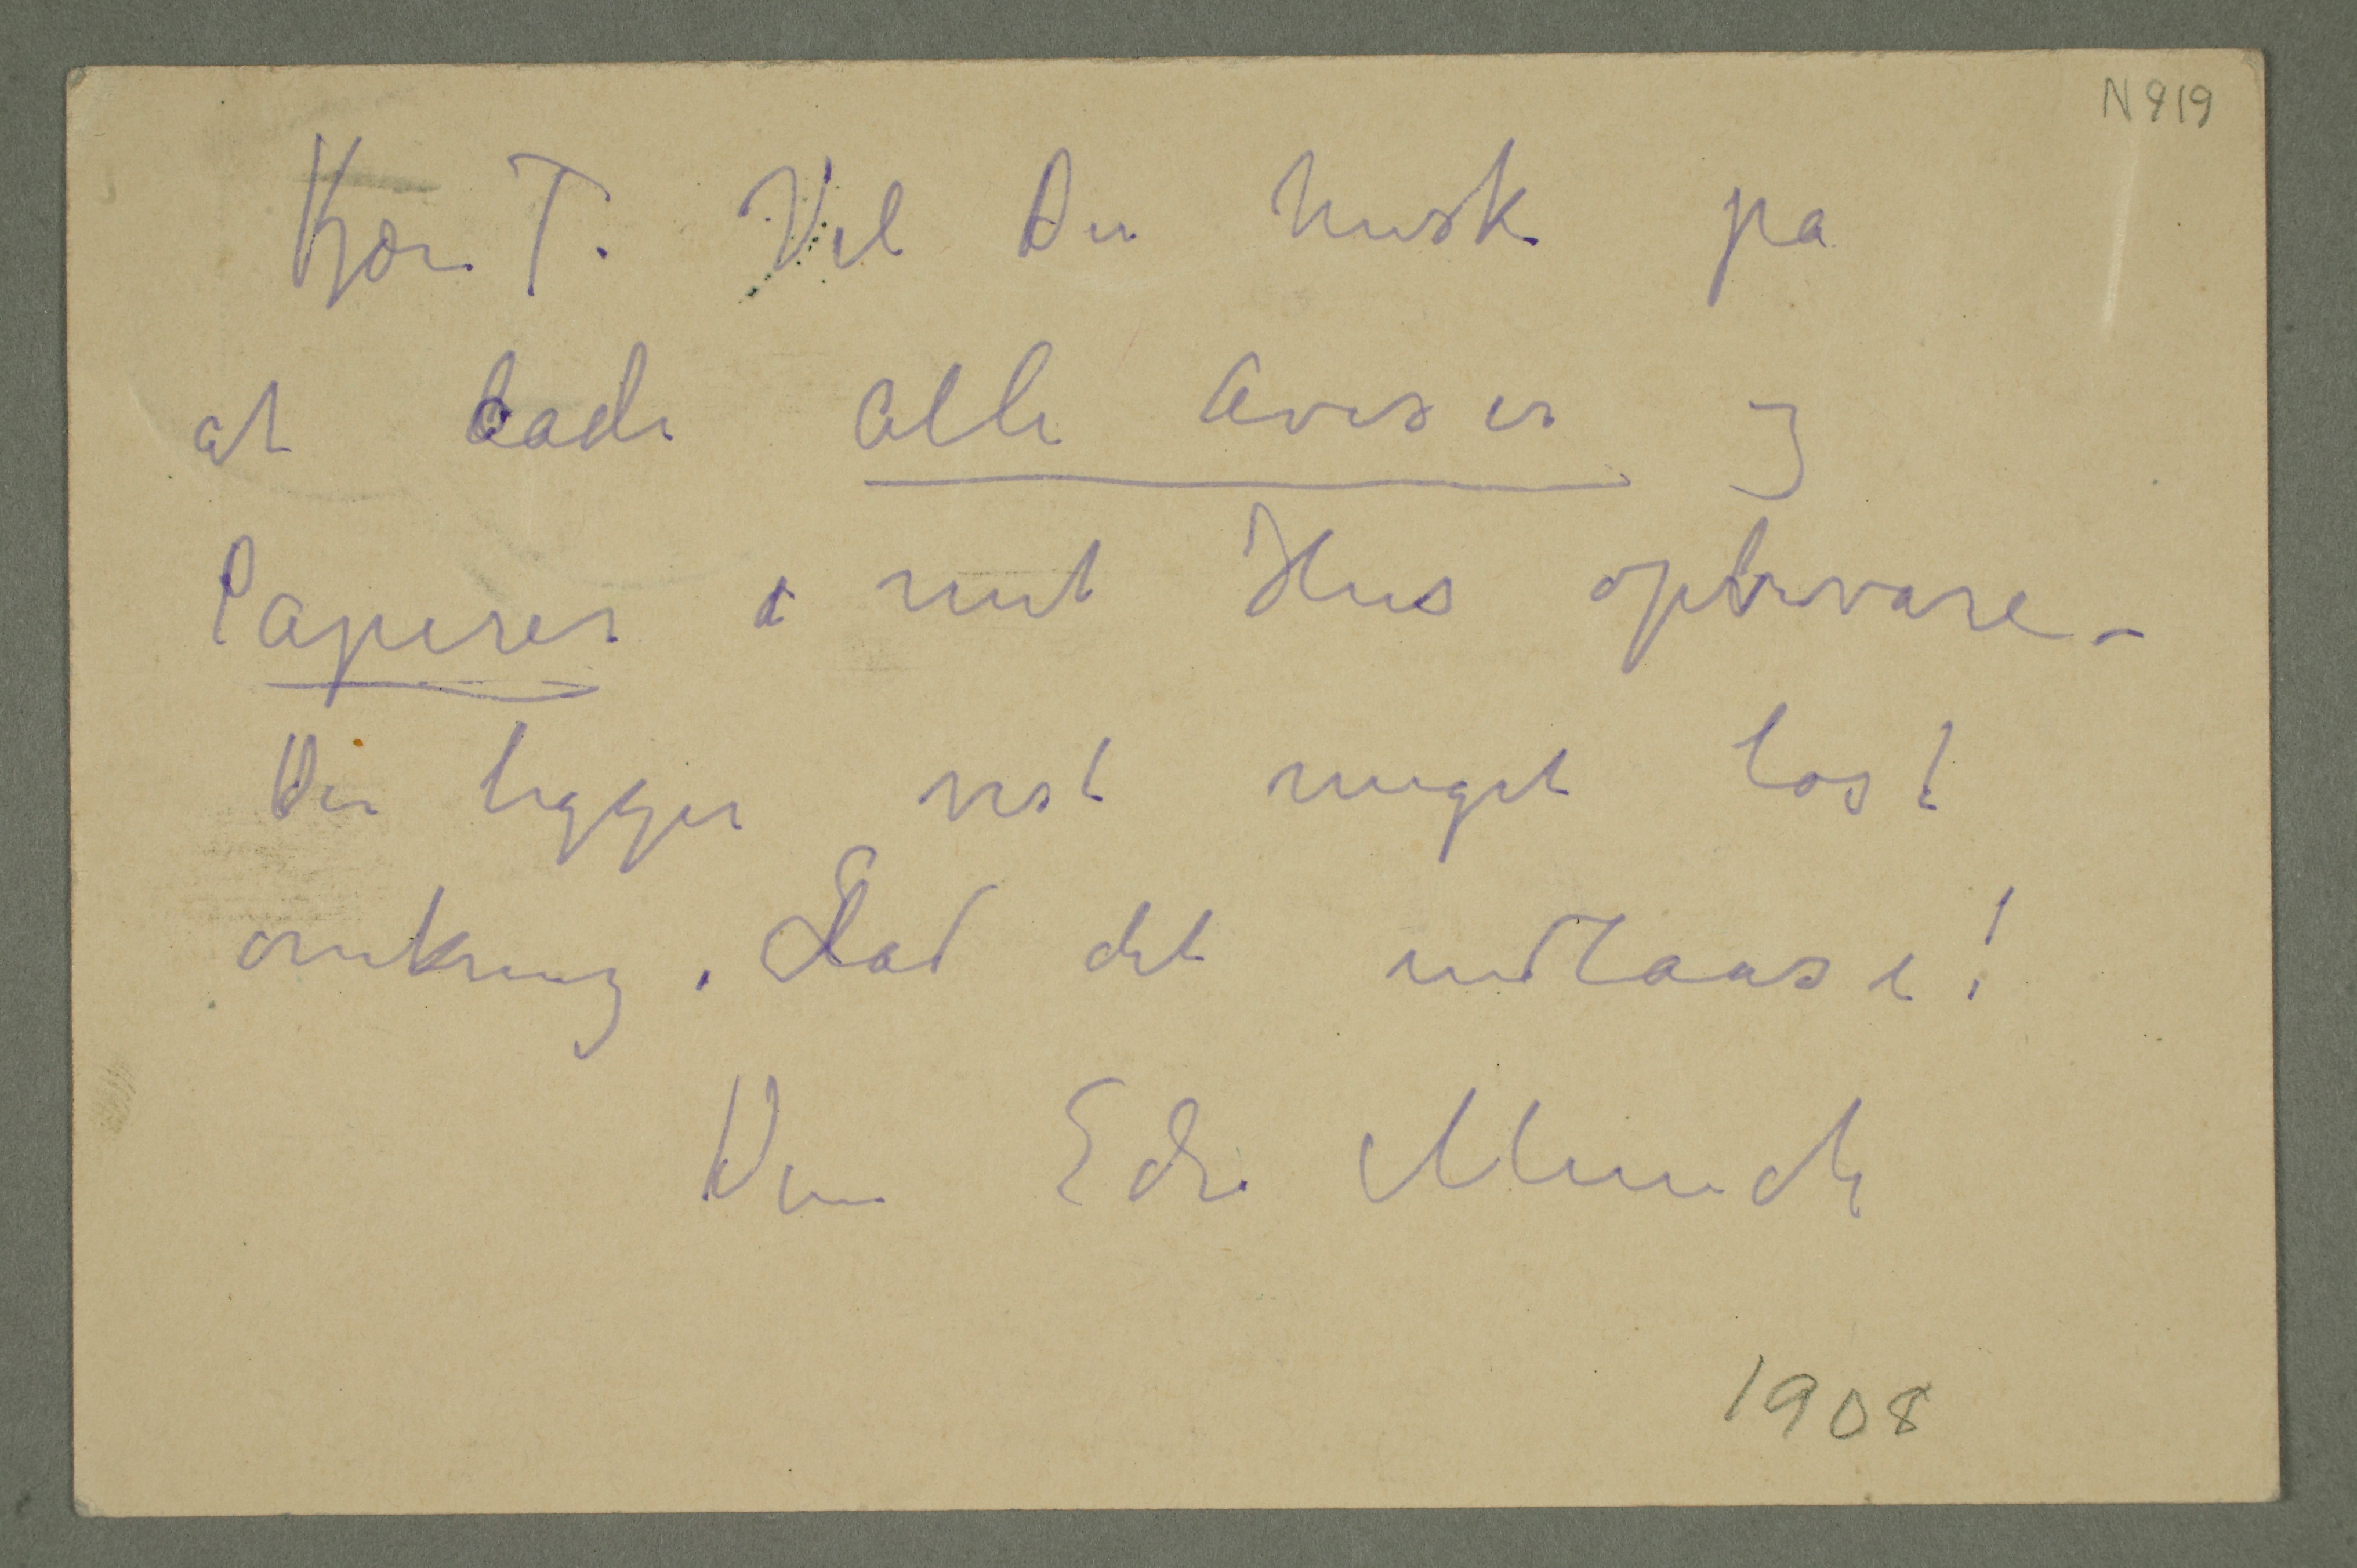 N 919
Kjære T. Vil Du huske på
at lade alle Aviser og
Papirer i mit Hus opbevare –
Der ligger vist meget løst
omkring. Lad det indlaase!
Din Edv. Munch
1908